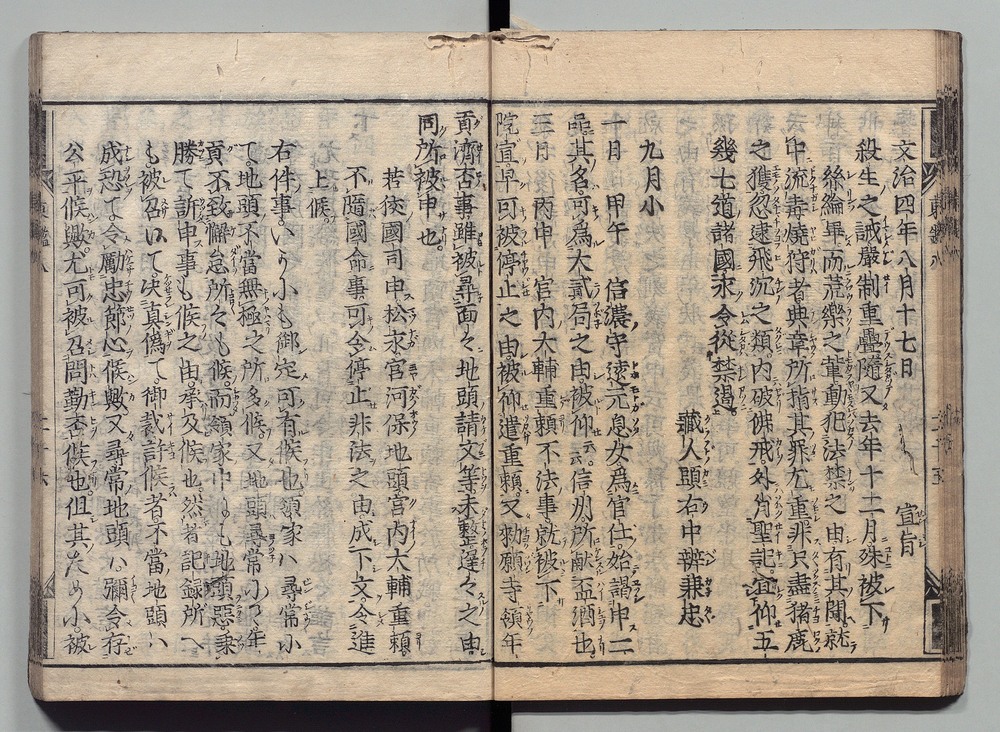 文治四年八月十七日　宣旨
殺生之誡嚴制重疊隨又去年十二月殊被下
絲綸畢而荒樂之輩動犯法禁之由有其聞就
中流毒燒狩者典章所指其罪尤重非只盡猪鹿
之獲忽逮飛沉之類内破佛戒外背聖記宜仰五
幾七道諸國永令從禁遏
藏人頭右中辨兼忠
九月小
十四日　甲午　信濃守遠元息女為官仕始謁申二
品其名可為大貳局之由被仰云信州所獻盃酒也
三日　丙申　宮内大輔重頼不法事就被下
院宣早可被停止之由被仰遣重頼又勅願寺領年
貢濟否事雖被尋面々地頭請文等未整遅々之由
同所被申也
若狹國司申松永宮河保地頭宮内大輔重頼
不隨國命事可令停止非法之由成下文令進
上候
右件事いかにも御定可有候也領家ハ尋常に
て地頭不當無極之所多候又地頭尋常にて年
貢不致懈怠所々も候而領家中にも地頭惡乗
勝て訴申事も候之由承及候也然者記録所へ
も被召以て决真偽て御裁許候者不當地頭ハ
成恐て令勵忠節心候歟又尋常地頭ハ彌令存
公平候歟尤可被召問勤否候也但其ために被